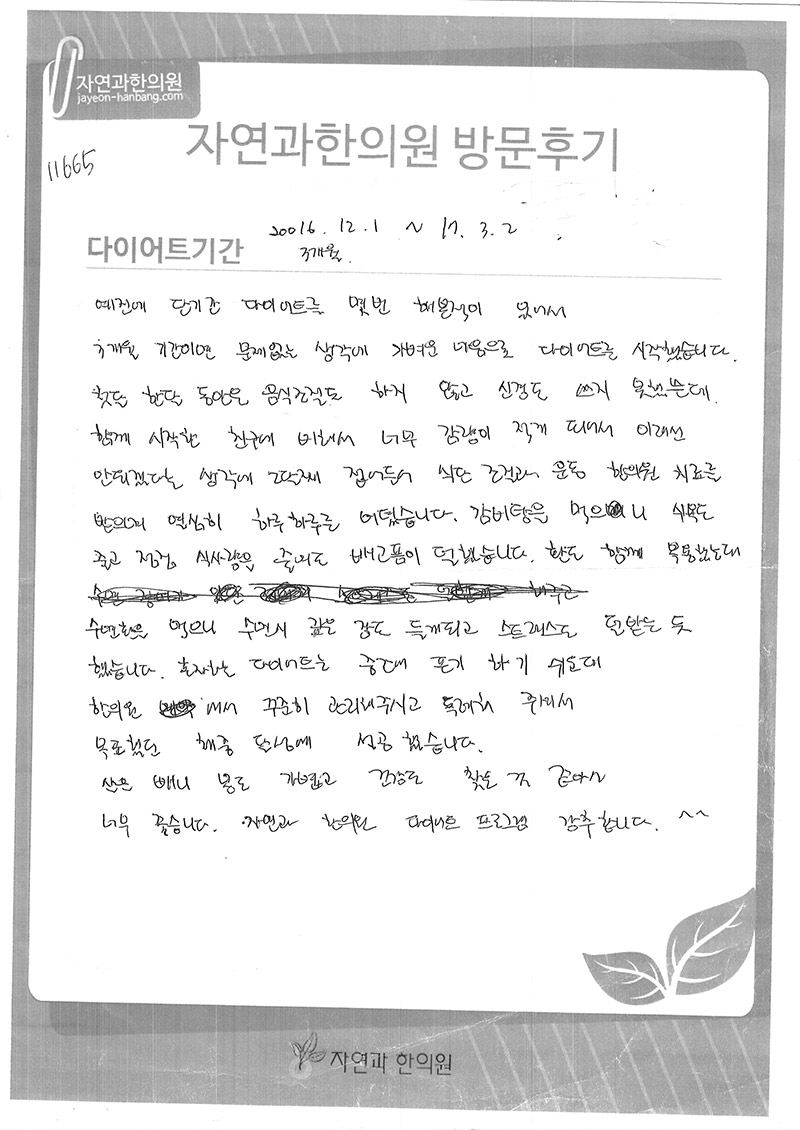 자연과한의원
jayeon-hanbang.com
자연과한의원 방문후기
11665
20016. 12. 1 ~ 17. 3. 2
다이어트기간
3개월.
예전에 단기간 다이어트를 몇번 해본적이 있어서
3개월 기간이면 문제없는 생각에 가벼운 마음으로 다이어트를 시작했습니다.
첫달 한달 동안은 음식조절도 하지 않고 신경도 쓰지 못했는데.
함께 시작한 친구에 비해서 너무 감량이 적게 되어서 이래선
안되겠다는 생각에 2달째 접어들어 식단 조절과 운동 한의원 치료를
받으며 열심히 하루하루를 버텼습니다. 감비탕을 먹으니 식욕도
줄고 점점 식사량을 줄여도 배고픔이 덜했습니다. 환도 함께 복용했는데
수면환을 먹으니 수면시 깊은 잠도 들게되고 스트레스도 덜받는 듯
했습니다. 혼자하는 다이어트는 중간에 포기 하기 쉬운데
한의원 에서 꾸준히 관리해주시고 독려해 주셔서
목표했던 체중 달성에 성공 했습니다.
살은 빼니 몸도 가볍고 건강도 찾는 것 같아서
너무 좋습니다. 자연과 한의원 다이어트 프로그램 강추합니다. ^^
자연과 한의원